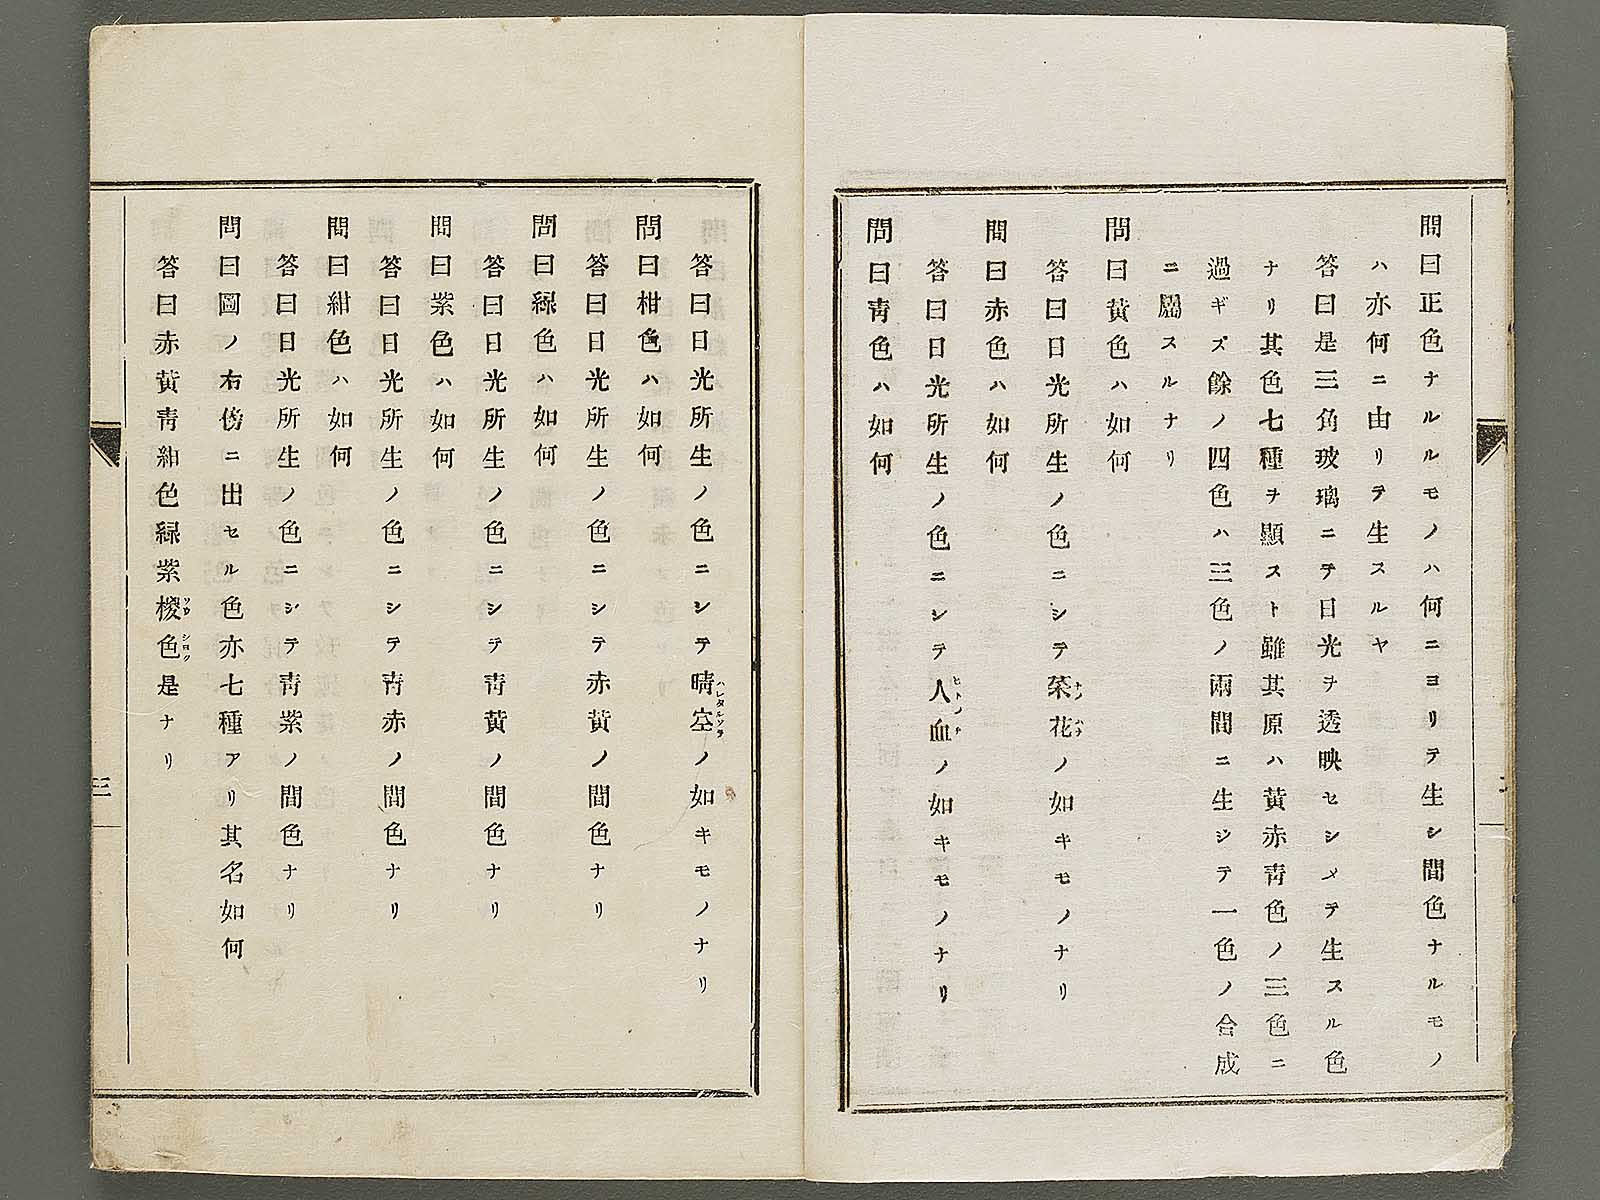 問曰正色ナルルモノハ何ニヨリテ生シ間色ナルモノ
ハ亦何ニ由リテ生スルヤ
答曰是三角玻璃ニテ日光ヲ透映セシメテ生スル色
ナリ其色七種ヲ顯スト雖其原ハ黄赤靑色ノ三色ニ
過ギズ餘ノ四色ハ三色ノ兩間ニ生ジテ一色ノ合成
ニ屬スルナリ
問曰黄色ハ如何
答曰日光所生ノ色ニシテ菜花ノ如キモノナリ
ナノハナ
問曰赤色ハ如何
答曰日光所生ノ色ニシテ人血ノ如キモノナリ
ヒトノチ
問曰靑色ハ如何
答曰日光所生ノ色ニシテ晴空ノ如キモノナリ
ハレタルソラ
問曰柑色ハ如何
答曰日光所生ノ色ニシテ赤黄ノ間色ナリ
問曰綠色ハ如何
答曰日光所生ノ色ニシテ靑黄ノ間色ナリ
問曰紫色ハ如何
答曰日光所生ノ色ニシテ靑赤ノ間色ナリ
問曰紺色ハ如何
答曰日光所生ノ色ニシテ靑紫ノ間色ナリ
問曰圖ノ右傍ニ出セル色亦七種アリ其名如何
答曰赤黄靑紺色緑紫椶色是ナリ
シヨク
三